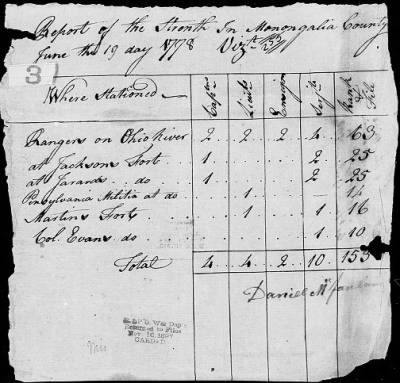 Report of the Strenth In Monongalia County
June the 19 day 1778 Vizt
3
Where Stationed Capns Lieuts Ensigns Serjts Rank & File
Rangers on Ohio River 2 2 2 4 63
at Jacksons Fort 1 2 25
at Jarards do 1 2 25
Pensylvania Militia at do 1 14
Martins Fort 1 1 16
Col. Evans do 1 10
Total 4 4 2 10 153
Daniel Mc
R & P. O. War Dep't
Returned to Files
Nov. 10
CARDED